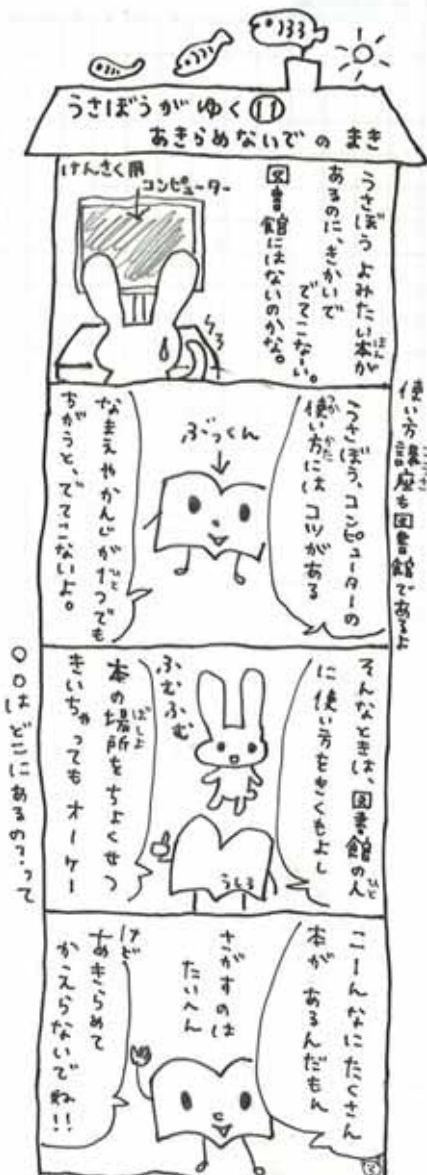 うさぼうがゆく⑪
あきらめないでの まき
けんさく用
コンピューター
うさぼう よみたい本が
ほん
あるのに、きかいで
でてこなーい。
図書館にはないのかな。
使い方講座も図書館であるよ
こうざ
うさぼう、コンピューターの
使い方には コツがある
つか かた
ぶっくん
なまえやかんじが1つでも
ひと
ちがうと、でてこないよ。
そんなときは、図書館の人
ひと
に使い方をきくもよし
ふむふむ
うしろ
本の場所をちょくせつ
ばしょ
きいちゃっても オーケー
○○はどこにあるの?って
こーんなにたくさん
本が あるんだもん
さがすのは
たいへん
けど
あきらめて
かえらないでね!!